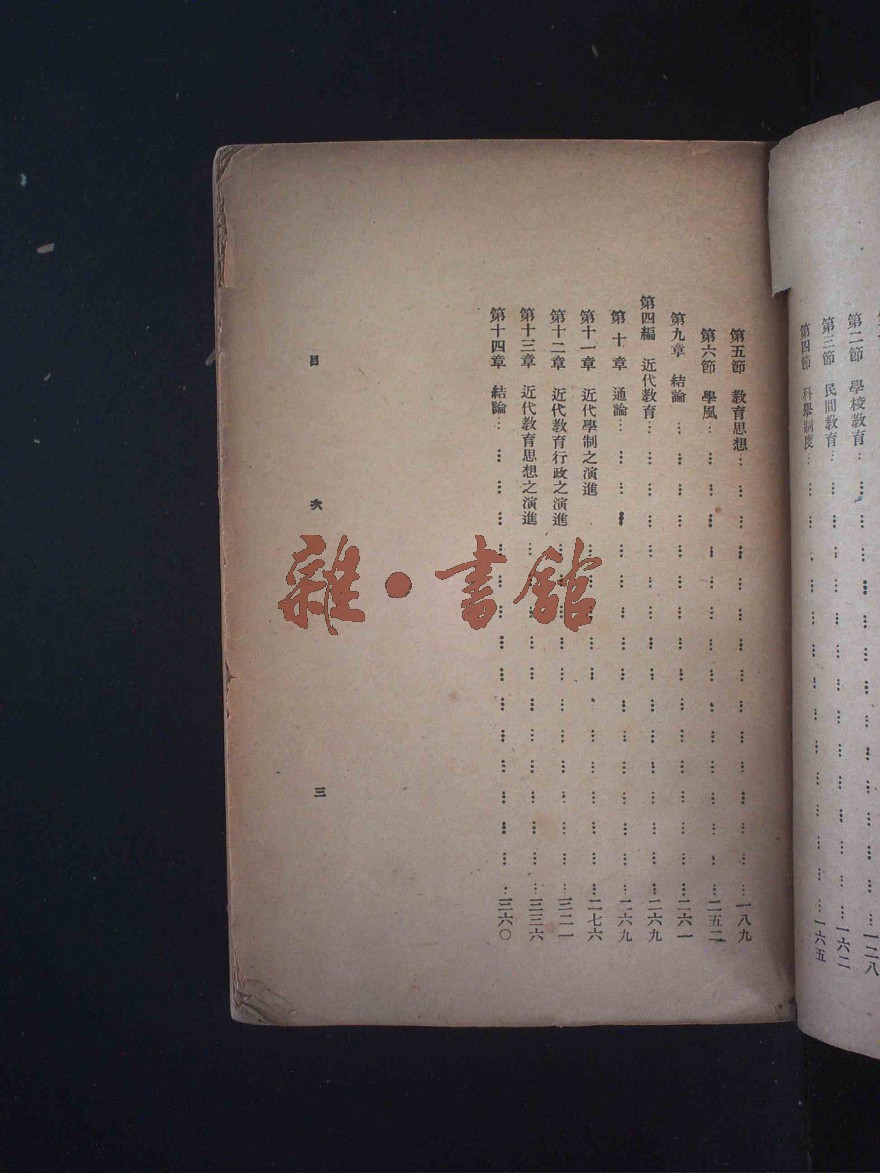 第二節　學校教育……一二八
第三節　民間教育……一六二
第四節　科舉制度……一六五
第五節　教育思想……一八九
第六節　學風……二五二
第九章　結論……二六一
第四編　近代教育……二六九
第十章　通論……二六九
第十一章　近代學制之演進……二七六
第十二章　近代教育行政之演進……三二一
第十三章　近代教育思想之演進……三三六
第十四章　結論……三六〇
目次　三
雜·書館